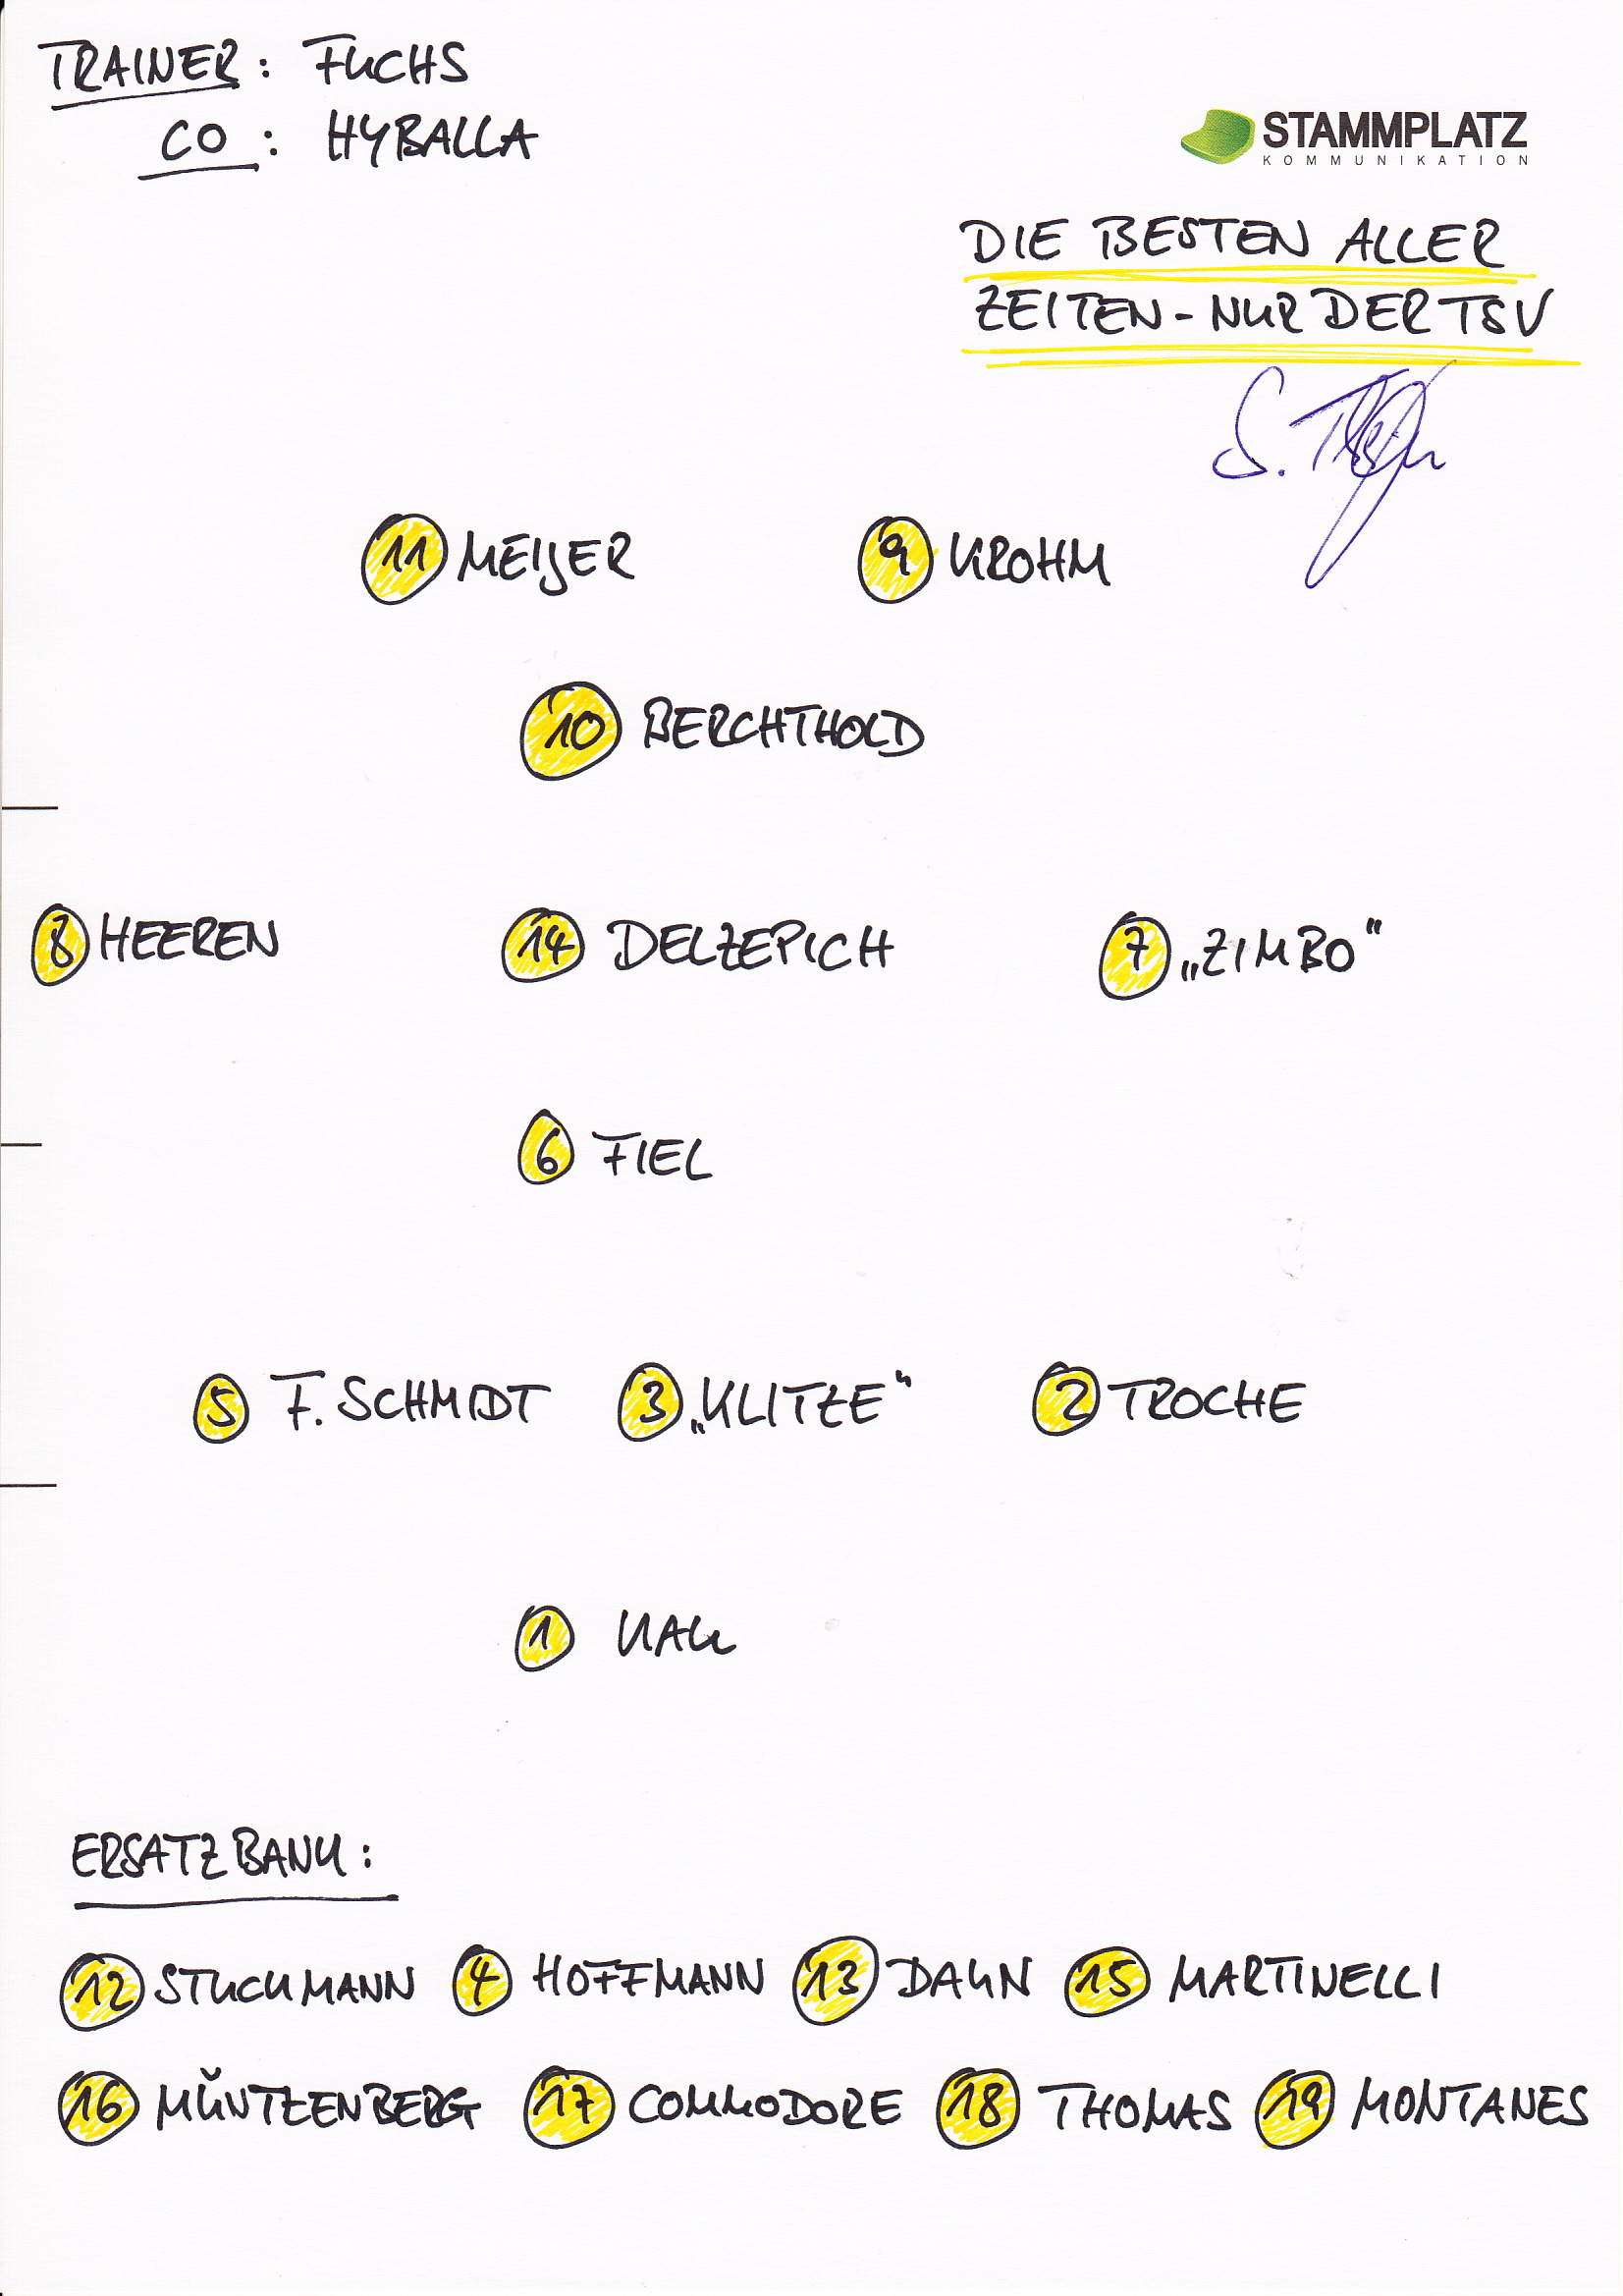 TRAINER: FUCHS
CO: HYBALLA
STAMMPLATZ
KOMMUNIKATION
DIE BESTEN ALLER
ZEITEN - NUR DER TSV
11 MEIJER 9 KROHM
10 BERCHTHOLD
8 HEEREN 14 DELZEPICH 7 „ZIMBO“
6 FIEL
5 F. SCHMIDT 3 „KLITZE“ 2 TROCHE
1 KAU
ERSATZBANK:
12 STUCKMANN 4 HOFFMANN 13 DAUN 15 MARTINELLI
16 MÜNTZENBERG 17 COMMODORE 18 THOMAS 19 MONTANES